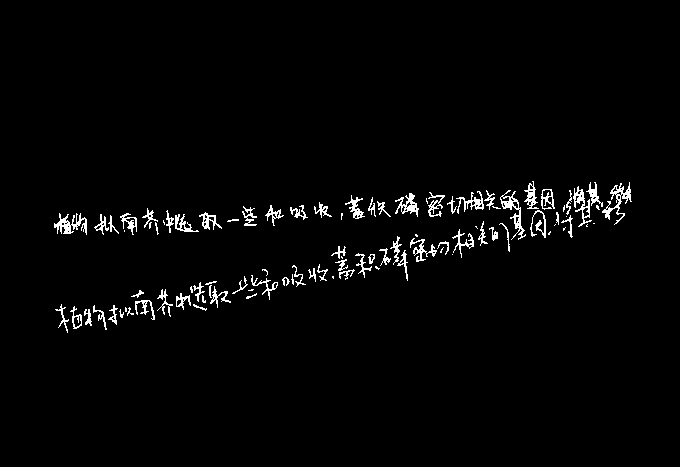 植物拟南芥中选取一些和吸收,蓄积磷密切相关的基因,将其移
植物拟南芥中选取一些和吸收,蓄积磷密切相关的基因,将其移